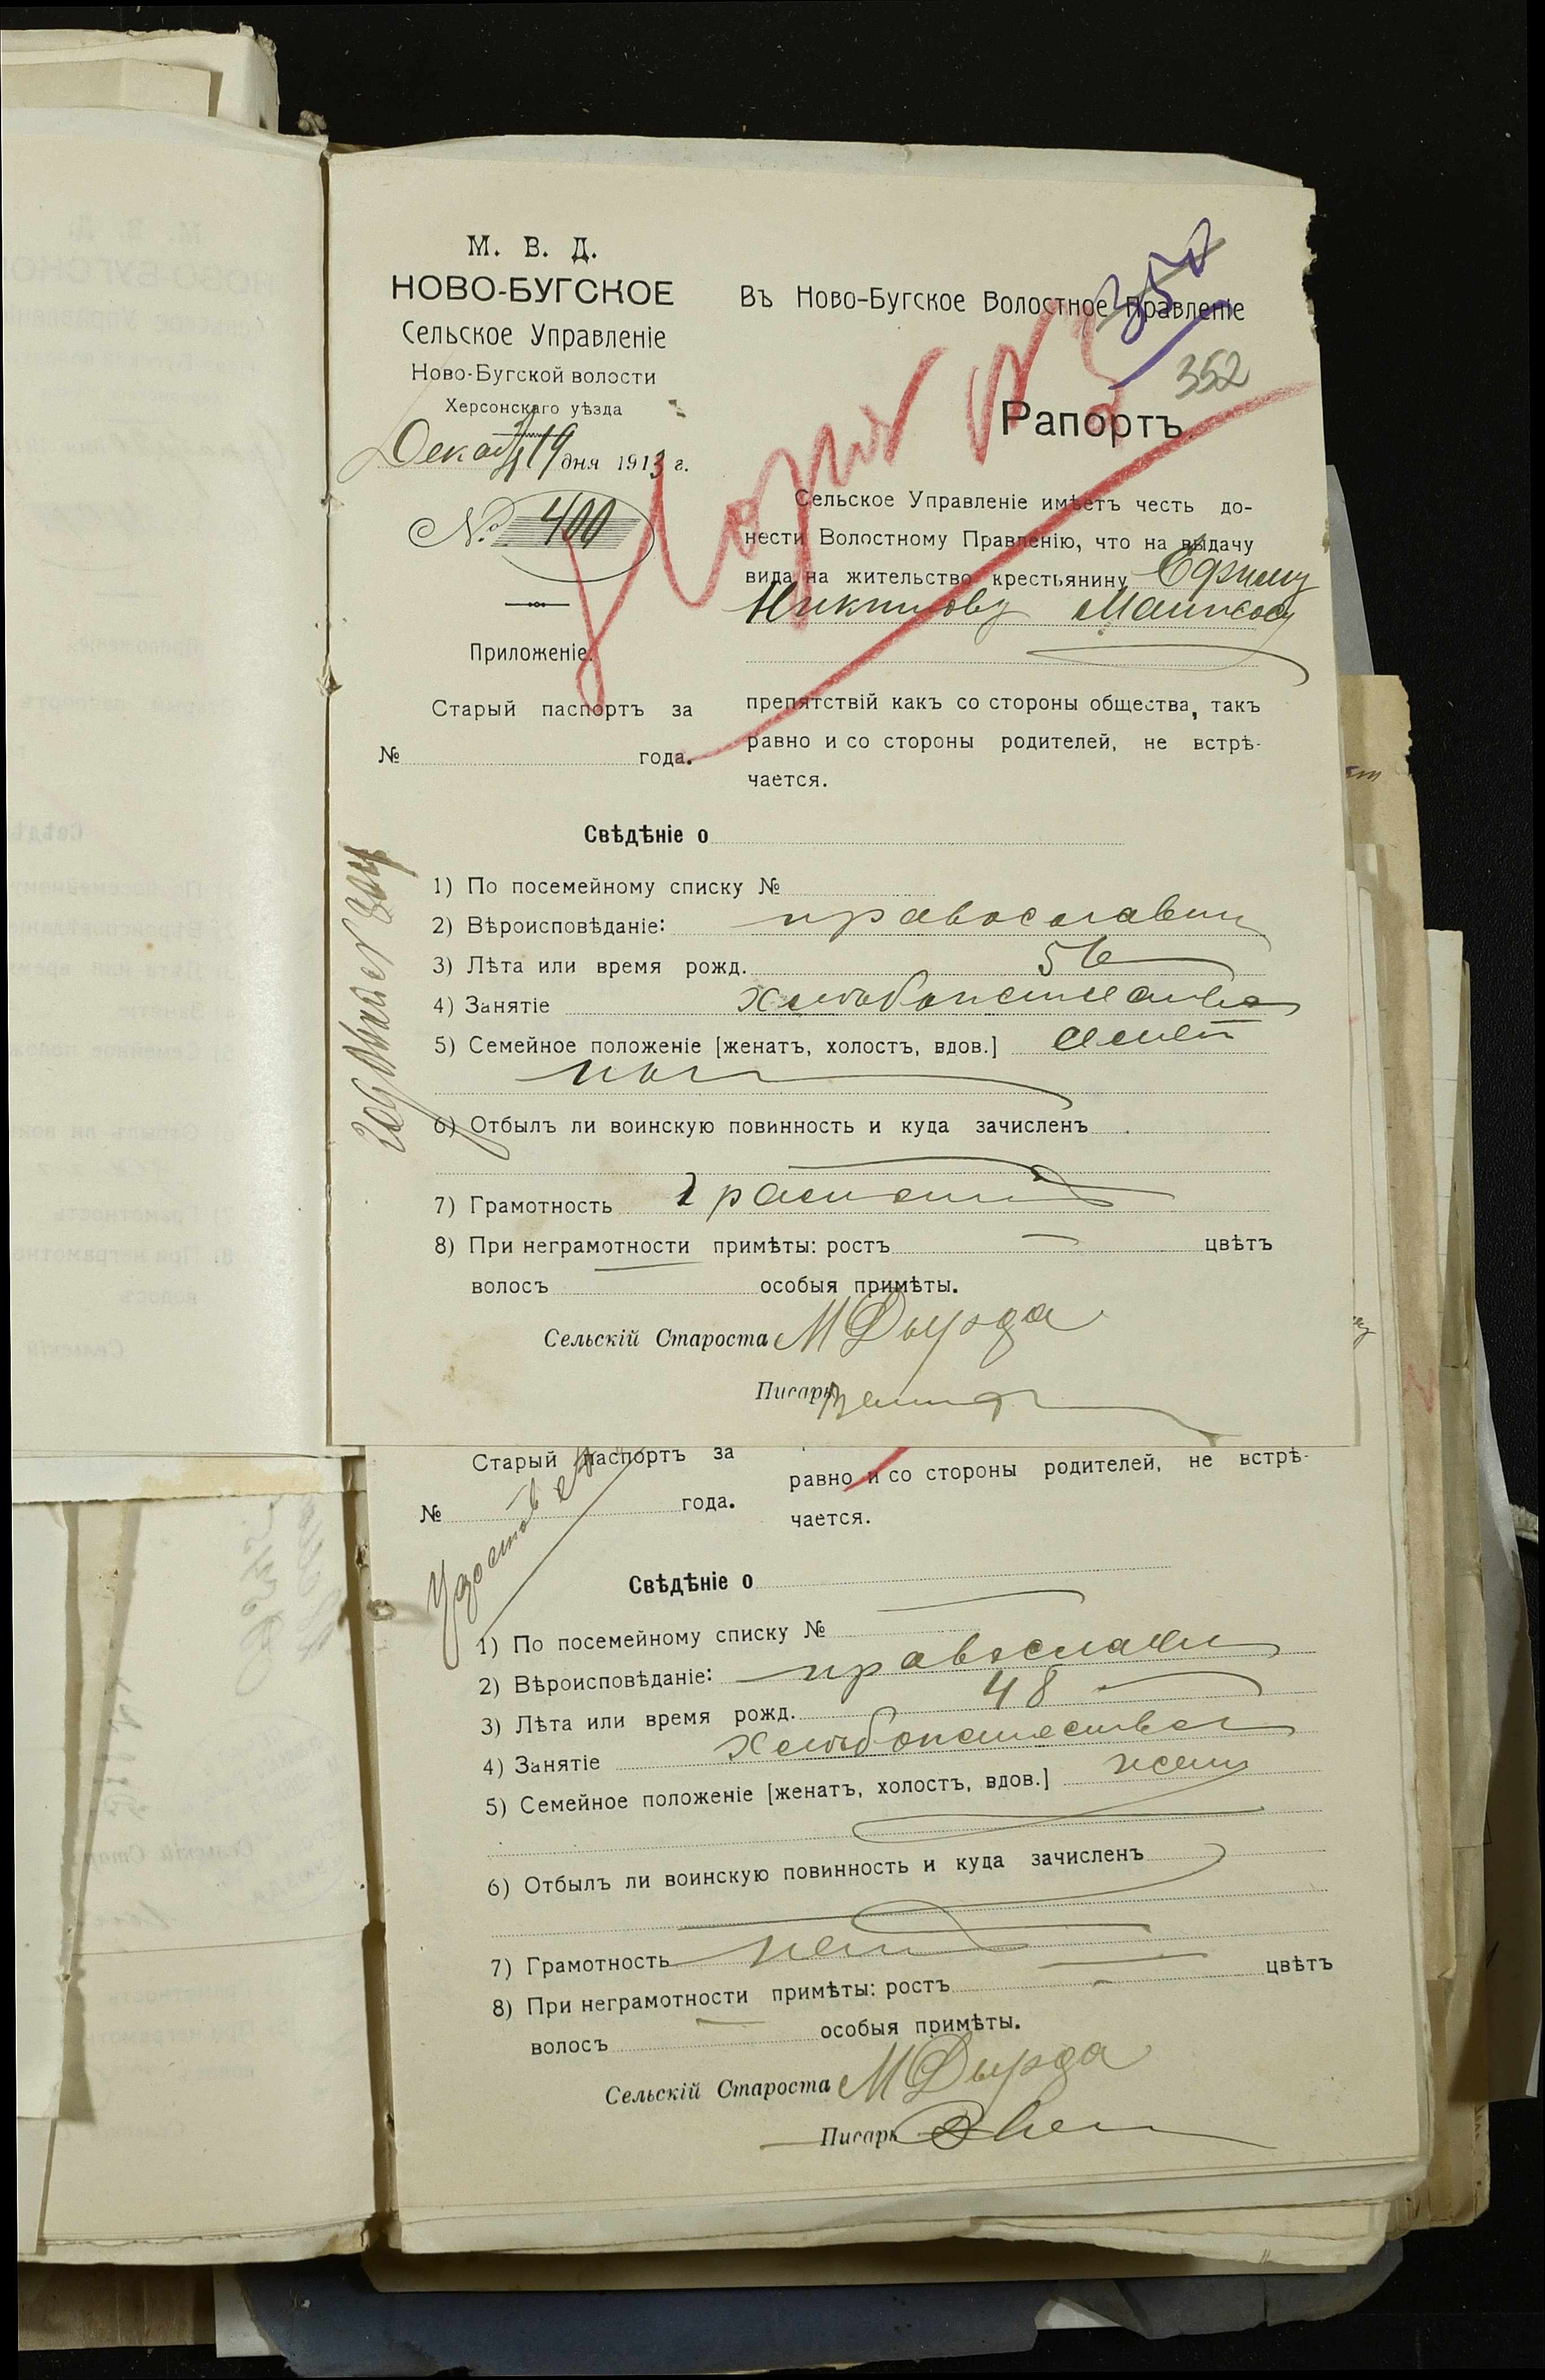 М. В. Д.
НОВО-БУГСКОЕ
Сельское Управленіе
Ново-Бугской волости
Херсонскаго уѣзда
Декаб 19 дня 1913 г.
№ 400
Приложеніе.
Старый паспортъ за
№ года.
Въ Ново-Бугское Волостное Правленіе
352
Рапортъ.
Сельское Управленіе имѣетъ честь до-
нести Волостному Правленію, что на выдачу
вида на жительство крестьянину Ефиму
препятствій какъ со стороны общества, такъ
равно и со стороны родителей, не встрѣ-
чается.
Свѣдѣніе о
1) По посемейному списку №
2) Вѣроисповѣданіе: православн
3) Лѣта или время рожд.
4) Занятіе хлѣбопашество
5) Семейное положеніе [женатъ, холостъ, вдов.]
6) Отбылъ ли воинскую повинность и куда зачисленъ
7) Грамотность
8) При неграмотности примѣты: ростъ цвѣтъ
волосъ особыя примѣты.
Сельскій Староста М Дырда
Писарь
Старый паспортъ за
№ года.
равно и со стороны родителей, не встрѣ-
чается.
Свѣдѣніе о
1) По посемейному списку №
2) Вѣроисповѣданіе: православн
3) Лѣта или время рожд. 48
4) Занятіе хлѣбопашество
5) Семейное положеніе [женатъ, холостъ, вдов.] жен
6) Отбылъ ли воинскую повинность и куда зачисленъ
7) Грамотность нетъ
8) При неграмотности примѣты: ростъ цвѣтъ
волосъ особыя примѣты.
Сельскій Староста М Дырда
Писарь